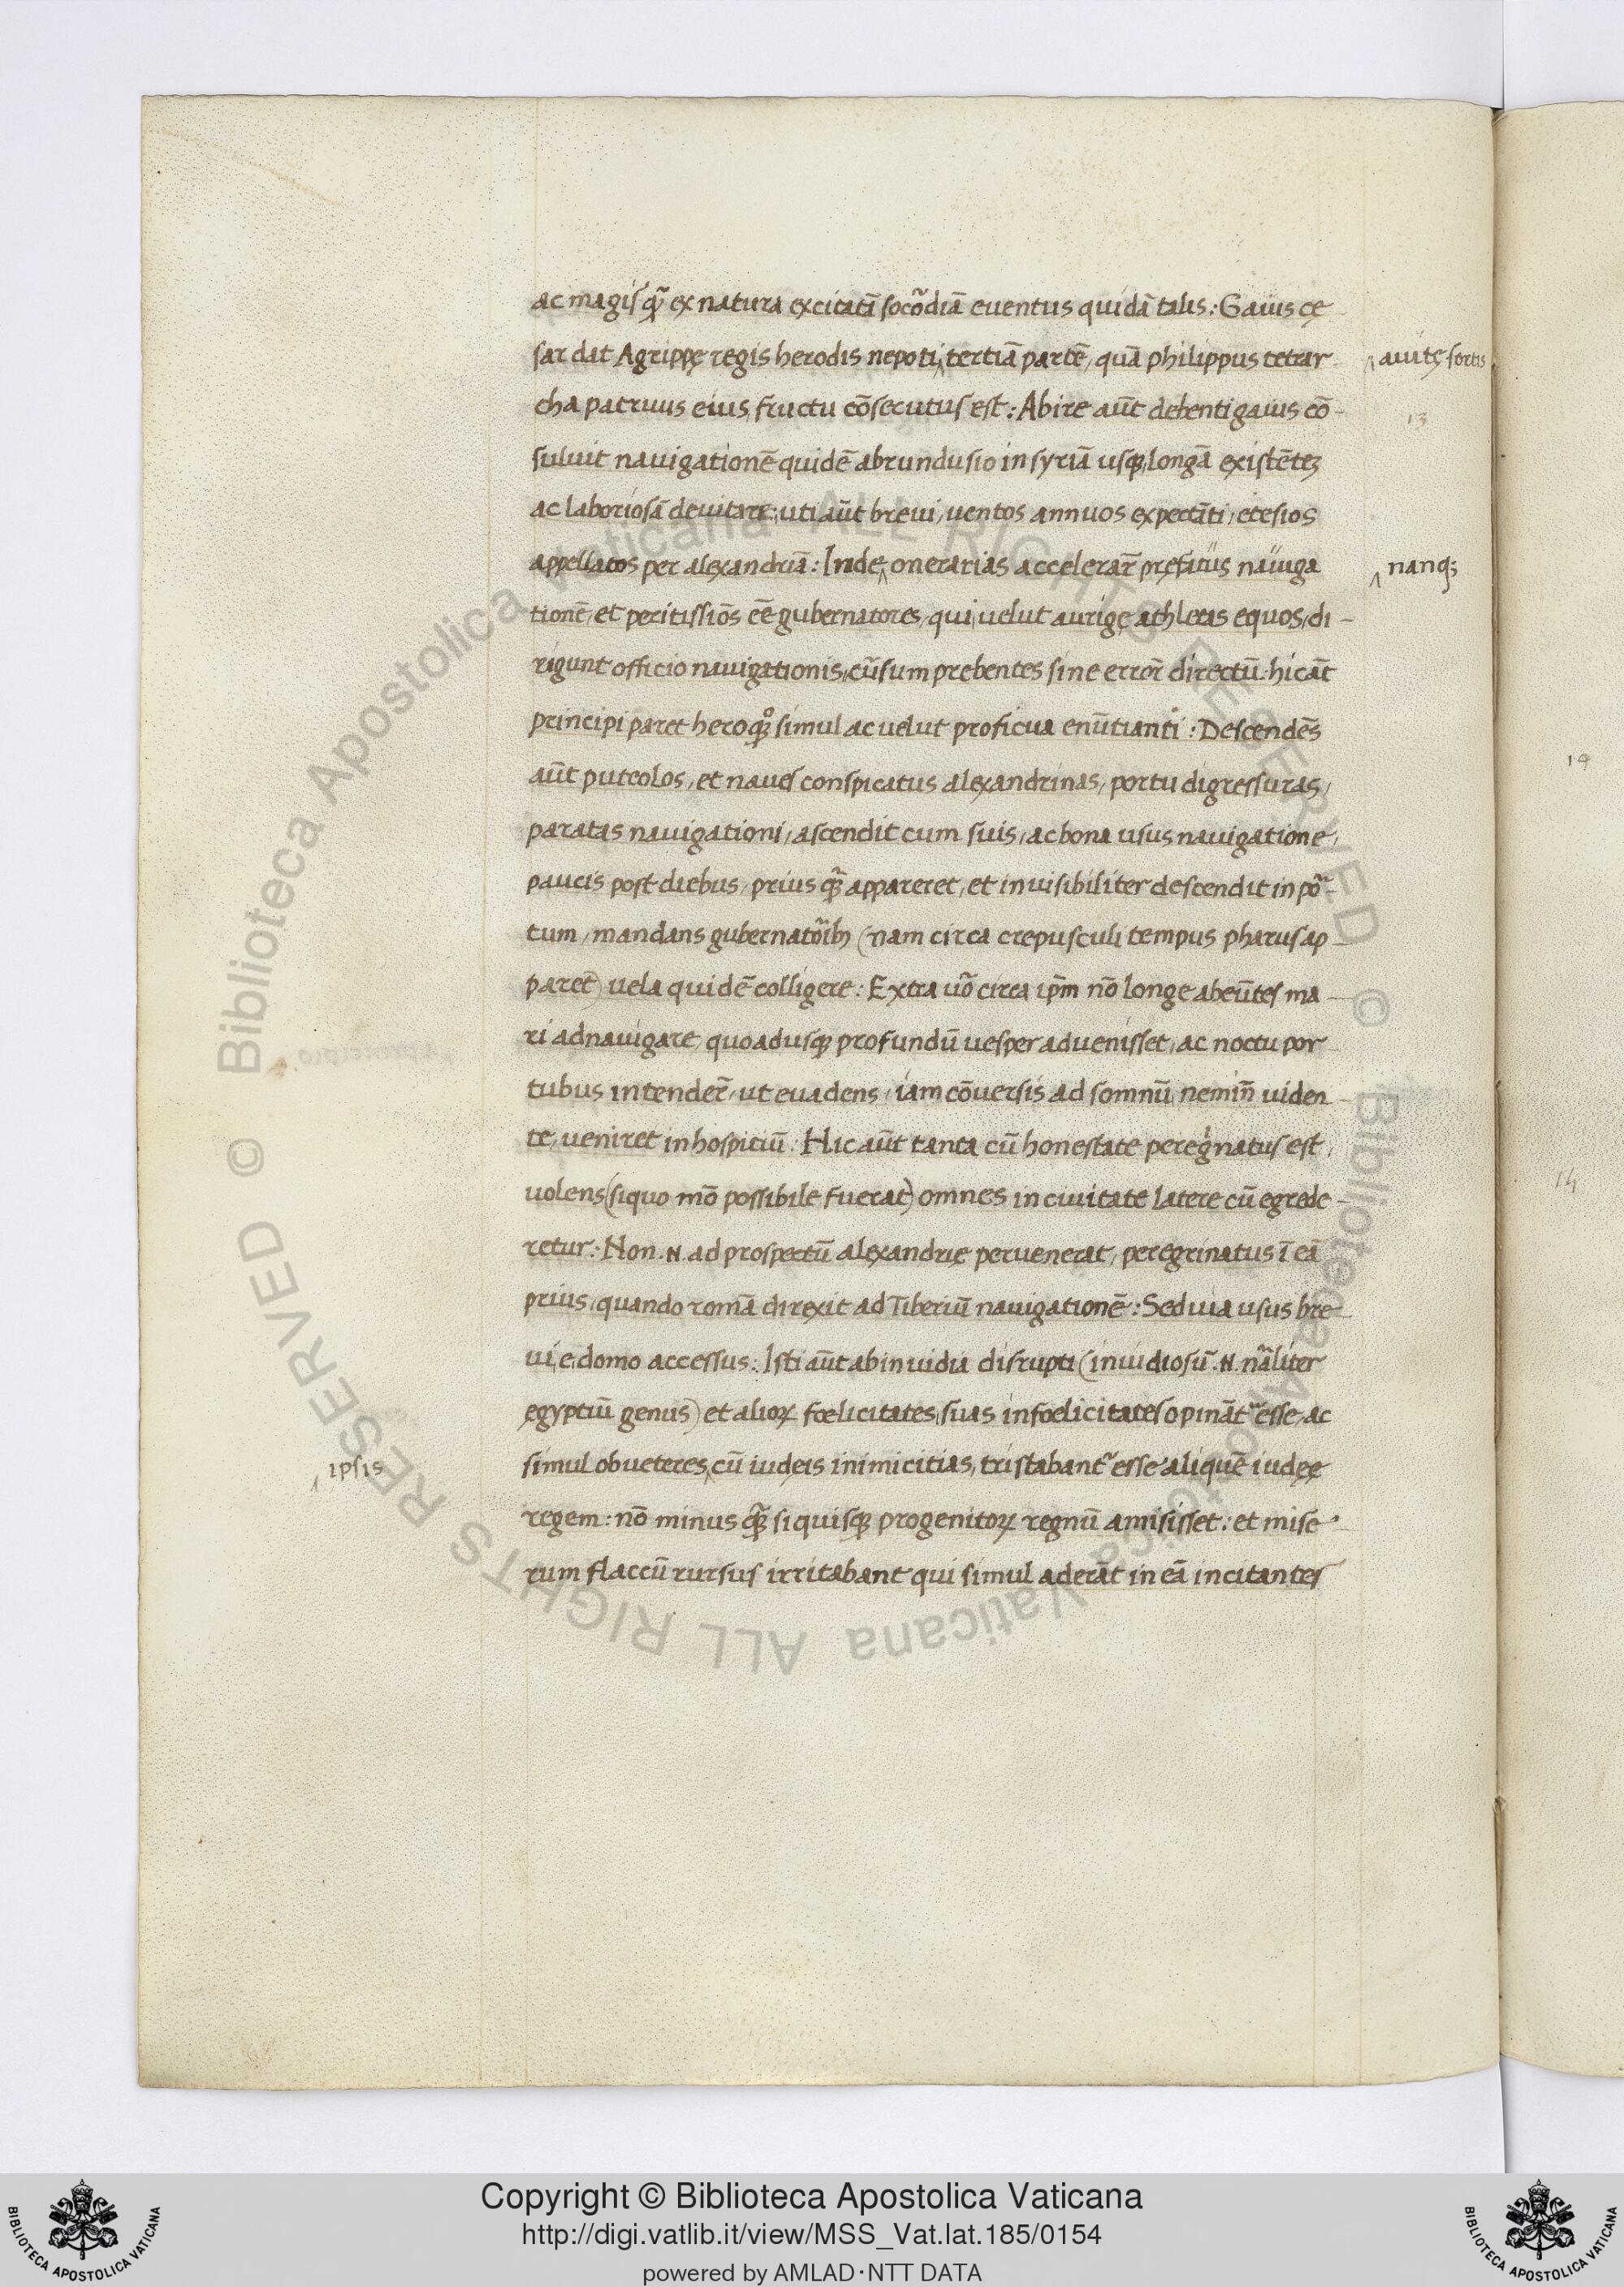 ac magis qꝫ̃ ex natura excitatā socõdiā euentus quidā talis: Gaius cę
sar dat Agrippę regis herodis nepoti, tertiā partē, quā philippus tetrar-
auitę sortis
cha patruus eius, fructu cōsecutus est: Abire aūt debenti gaius cō-
13
suluit nauigationē quidē abrundusio in syriā usqꝫ longā existētēꝫ
ac laboriosā deuitare: uti aūt breui, uentos annuos expectāti, etesios
appellatos per alexandriā: Inde, onerarias accelerar̃ pręfatus nauiga
nanqꝫ
tionē, et peritissiōs eē gubernatores, qui uelut aurigę athletas equos, di-
rigunt officio nauigationis, cũsum prebentes sine error̃ directū: hic āt
principi paret heroqꝫ simul ac uelut proficua enūtianti: Descendēs
14
aūt puteolos, et naues conspicatus alexandrinas, portu digressuras,
paratas nauigationi, ascendit cum suis, ac bona usus nauigatione,
paucis post diebus, prius qꝫ̃ appareret, et inuisibiliter descendit in põ-
tum, mandans gubernatõibꝫ (nam circa crepusculi tempus pharus ap-
paret) uela quidē colligere: Extra uō circa ip̄m nō longe abeūtes ma-
ri adnauigare, quoadusqꝫ profundū uesper aduenisset, ac noctu por
tubus intender̃, ut euadens, iam cōuersis ad somnū, nemin̄ uiden-
te, ueniret in hospitiū: Hic aūt tanta cū honestate peregⁱnatus est,
14
uolens (si quo mō possibile fuerat) omnes in ciuitate latere cū egrede-
retur: Non .N. ad prospectū alexandrię peruenerat, peregrinatus ī eā
prius, quando romā direxit ad Tiberiū nauigationē: Sed uia usus bre
ui, e domo accessus: Isti aūt ab inuidia disrupti (inuidiosū .N. nãliter
ęgyptiū genus) et alioꝝ fœlicitates, suas infœlicitates opināt᷑ esse, ac
ipsis
simul ob ueteres, cū iudeis inimicitias, tristabant᷑ esse aliquē iudęę
regem: nō minus qꝫ̃ si quisqꝫ progenitoꝝ regnū amisisset: et mise-
rum flaccū rursus irritabant qui simul aderāt in eā incitantes
Copyright © Biblioteca Apostolica Vaticana
http://digi.vatlib.it/view/MSS_Vat.lat.185/0154
powered by AMLAD·NTT DATA
© Biblioteca Apostolica Vaticana ALL RIGHTS RESERVED © Biblioteca Apostolica Vaticana ALL RIGHTS RESERVED
BIBLIOTECA APOSTOLICA VATICANA
BIBLIOTECA APOSTOLICA VATICANA